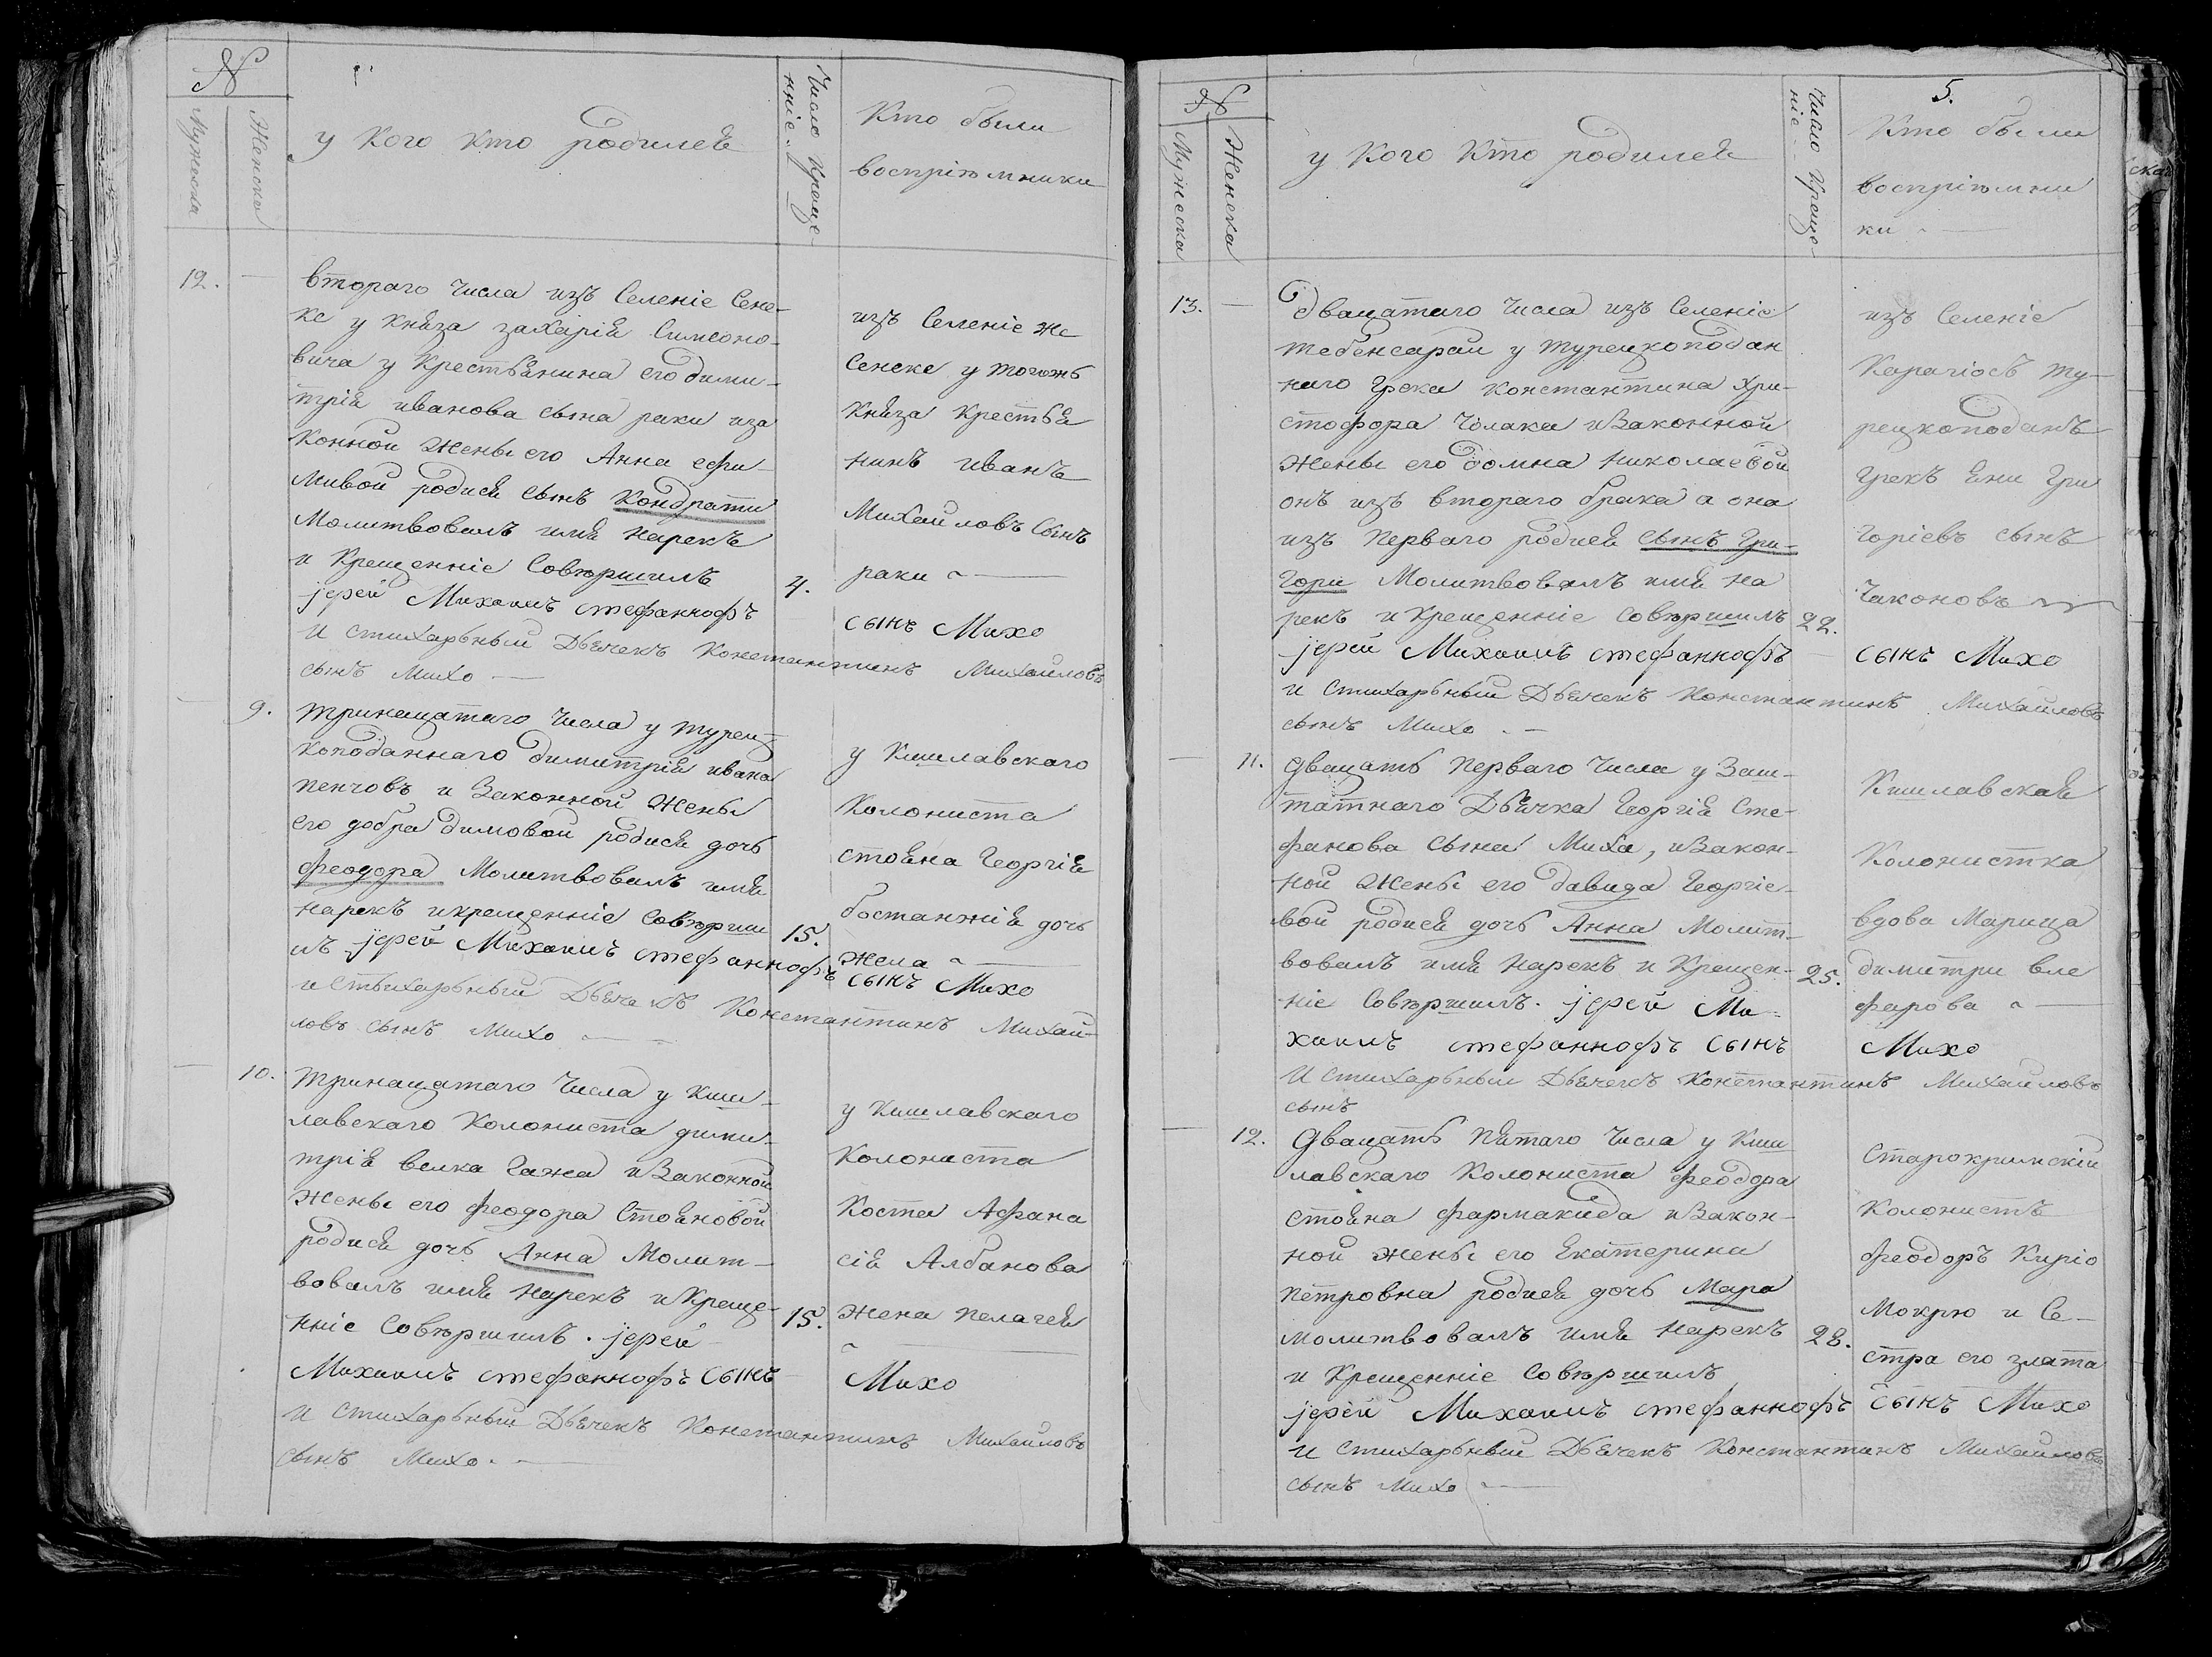 №
Мужеска
Женска
у Кого Кто родился
Число Креще-
нніе.
Кто были
воспріэмники
12.
втораго Числа изъ Селеніе Сене-
ке у Княза захарія Симеоно-
вича у Крестьянина его дими-
трія иванова сына раки иза
Конной Жены его Анна ефи-
мивой родися сынъ Кондрати
Молитвовалъ имя нарекъ
и Крещенніе Совэршилъ
јерей Михаилъ стефаннофъ
4.
изъ Селеніе же
Сенеке у тогожъ
Княза Крестья
нинъ иванъ
Михаиловъ Сынъ
раки
сынъ Михо
и стихарьный Дьячекъ Константинъ Михаиловъ
сынъ Михо
9.
тринацатаго Числа у турец-
коподаннаго димитрія ивана
пенчовъ и Законной Жены
его добра димовой родися дочь
феодора Молитвовалъ имя
нарекъ икрещенніе Совэрши
лъ јерей Михаилъ стефаннофъ
15.
у Кишлавскаго
Колониста
стояна Георгія
бостанжія дочь
жела
сынъ Михо
и Стьихарьный Дьячекъ Константинъ Михаи-
ловъ сынъ Михо
10.
тринацатаго Числа у Киш-
лавскаго Колониста дими-
трія велка Гажа иЗаконной
Жены его феодора Стояновой
родися дочь Анна Молит-
вовалъ имя нарекъ иКреще-
нніе Совэршилъ. јерей
Михаилъ стефаннофъ Сынъ
15.
у Кишлавскаго
Колониста
Коста Афана
сія Албанова
жена пелагея
Михо
и Стихарьный Дьячекъ Константинъ Михаиловъ
сынъ Михо.
№
Мужеска
Женска
у Кого Кто родился
Число Креще-
ніе
5.
Кто были
воспріэмни
ки
13.
двацатаго Числа изъ Селеніе
тебенсараи у турецкоподан
наго Грека Константина Хри-
стофора Чолака иЗаконной
Жены его домна Николаевой
онъ изъ втораго брака а она
изъ перваго родися сынъ Гри-
гори Молитвовалъ имя на
рекъ и Крещенніе совэршилъ
јерей Михаилъ стефаннофъ
22.
изъ Селеніе
Карагіосъ ту-
рецкоподанъ
Грекъ Яни Гри
горіевъ сынъ
Чаконовъ
сынъ Михо
и Стихарьный Дьячекъ Константинъ Михаиловъ
сынъ Михо.
11.
двацать перваго Числа у Заш-
татнаго Дьячка Георгія Сте-
фанова Сына Миха, иЗакон-
ной Жены его давида Георгіе-
вой родися дочь Анна Молит-
вовалъ имя нарекъ и Крещен-
ніе Совэршилъ. јерей Ми-
хаилъ стефаннофъ Сынъ
25.
Кишлавская
Колонистка
вдова Марица
димитри вле
фарова
Михо
и стихарьный Дьячекъ Константинъ Михаиловъ
сынъ
12.
двацать пятаго Числа у Киш
лавскаго Колониста феодора
стояна фармакида иЗакон-
ной жены его Екатерина
петровна родися дочь Мара
молитвовалъ имя нарекъ
и Крещенніе Совэршилъ
јерей Михаилъ стефаннофъ
28.
Старокримскій
Колонистъ
феодоръ Киріо
Мокрю и Се-
стра его злата
Сынъ Михо
и Стихарьный Дьячекъ Константинъ Михаиловъ
сынъ Михо